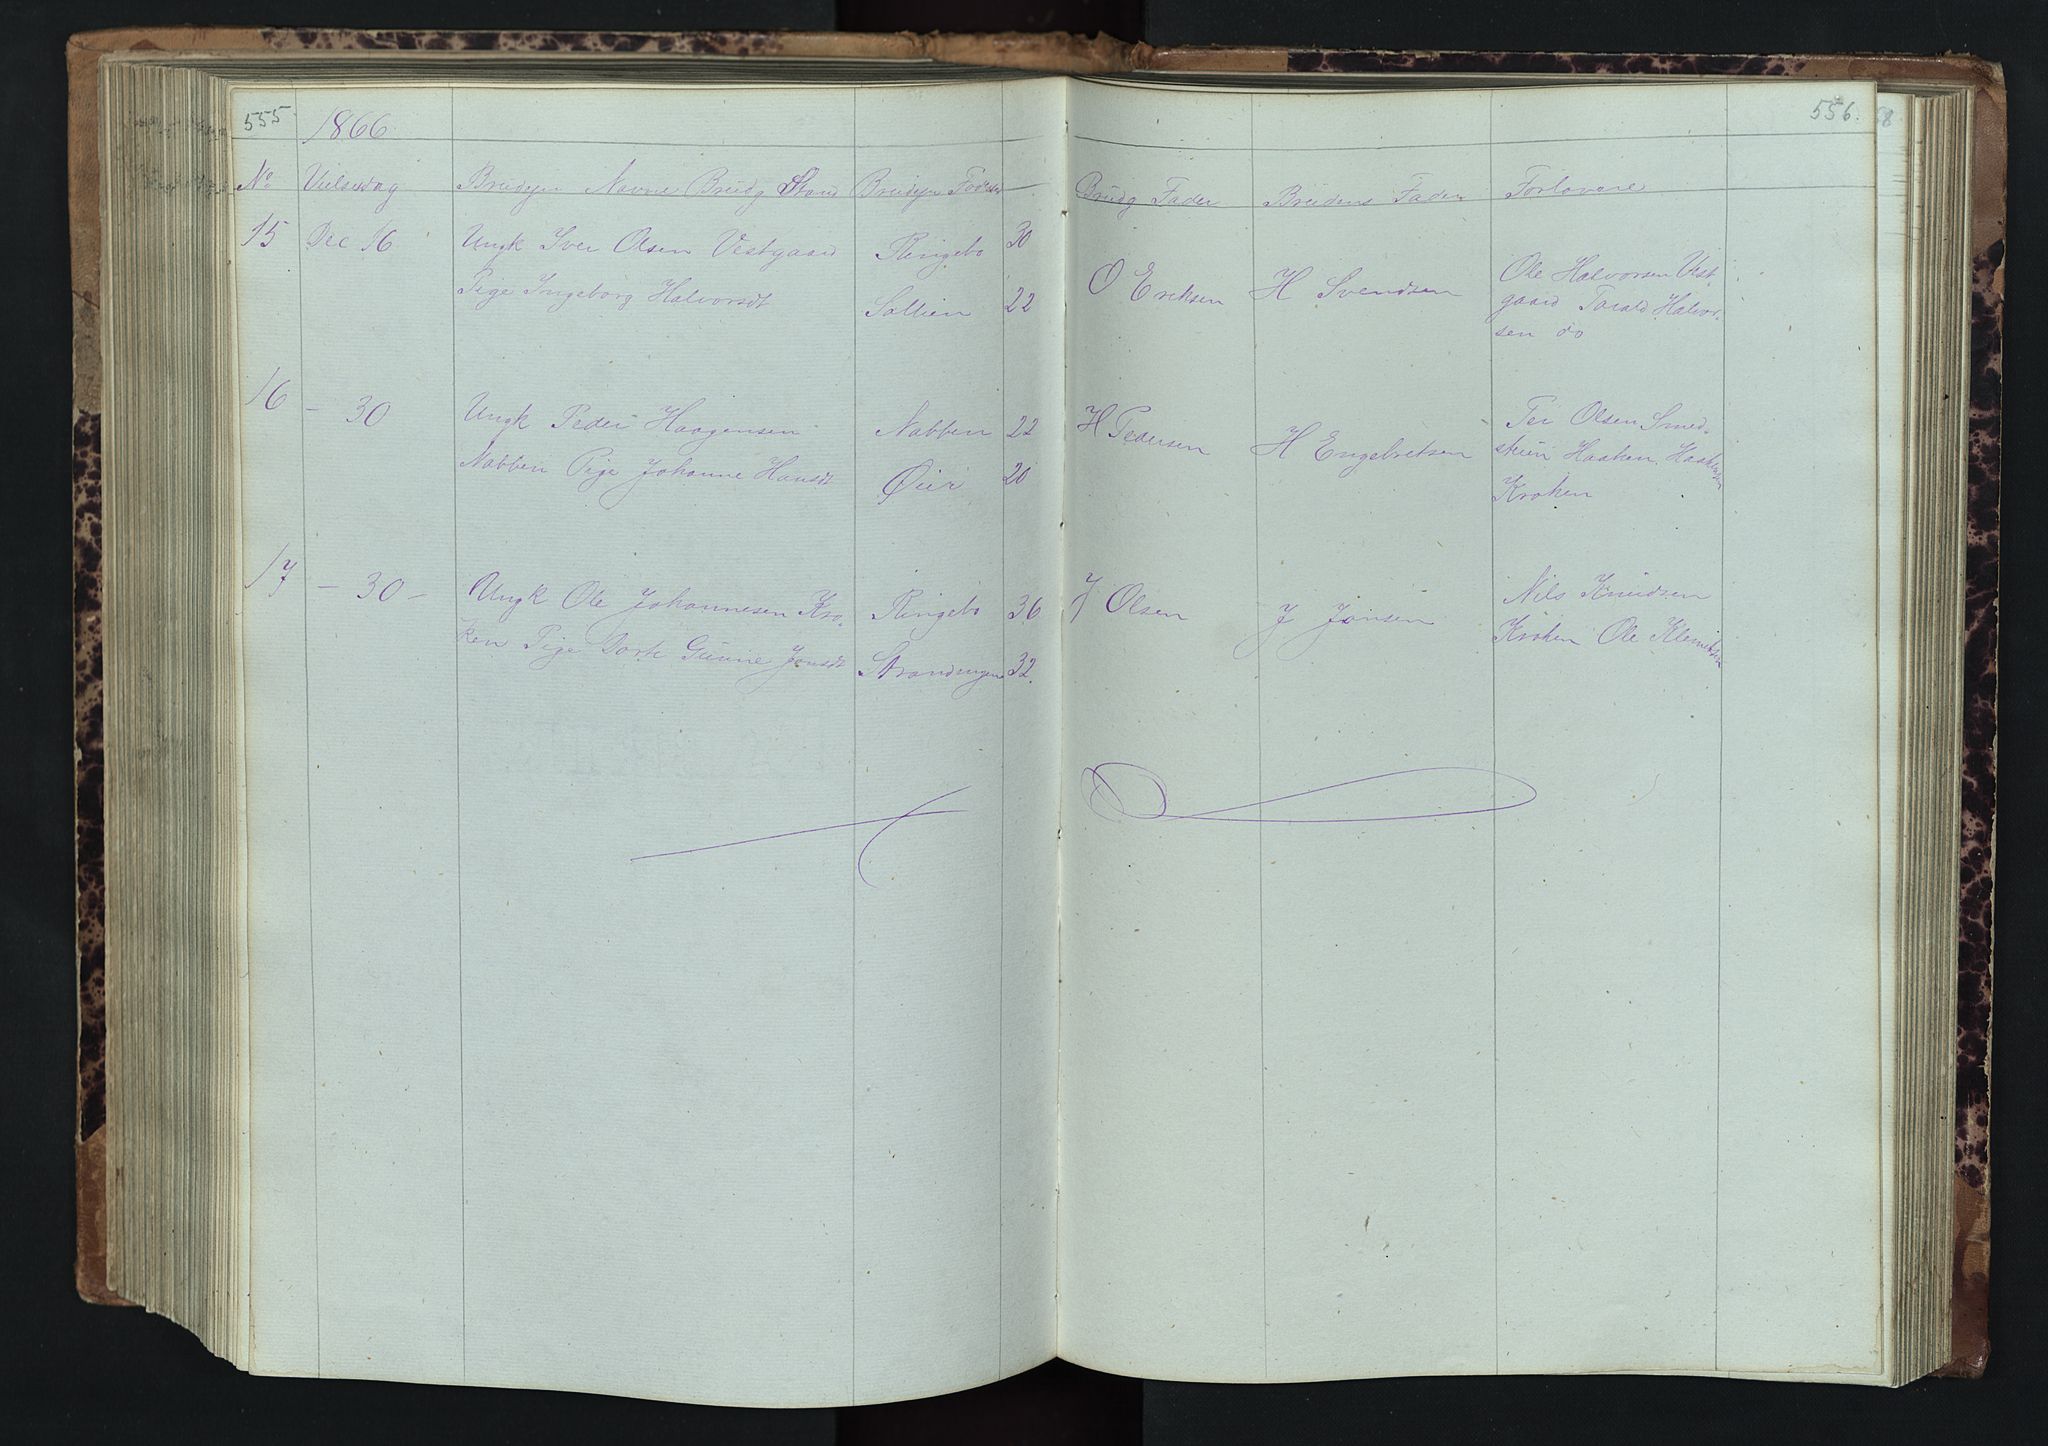 555
1866
No Vielsesdag Brudfn Navne Brudg Stand Brudfn Fødested
15 Dec 16 Ungk Iver Olsen Vestgaard Ringebo 30
Pige Ingeborg Halvorsdt Sollien 22
16 – 30 Ungk Peder Haagensen Nabben 22
Nabben Pige Johanne Hansdt Øier 20
17 – 30 – Ungk Ole Johannesen Kro-
ken Pige Dorte Gunne Jonsdt Ringebo 36
Strandengen 32.
556.
Brudg Fader Brudens Fader Forlovere
O Eriksen H Svendsen Ole Halvorsen Vest-
gaard Torald Halvor-
sen do
H Pedersen H Engebretsen Per Olsen Smed-
stuen Haaken Haakensen
Kroken
J Olsen J Jonsen Nils Knudsen
Kroken Ole Klemetsen